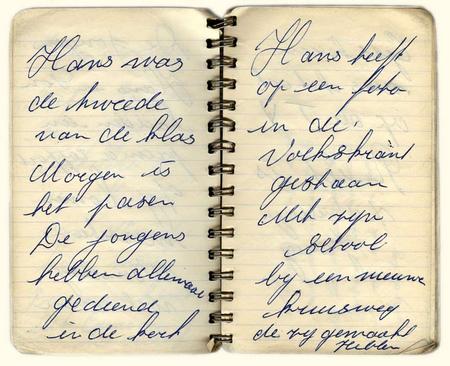 Hans was
de tweede
van de klas
Morgen is
het pasen
De jongens
hebben allemaal
gediend
in de kerk
Hans heeft
op een foto
in de
Volkskrant
gestaan
Met zijn
school
bij een nieuwe
kruisweg
de zij gemaakt
hebben